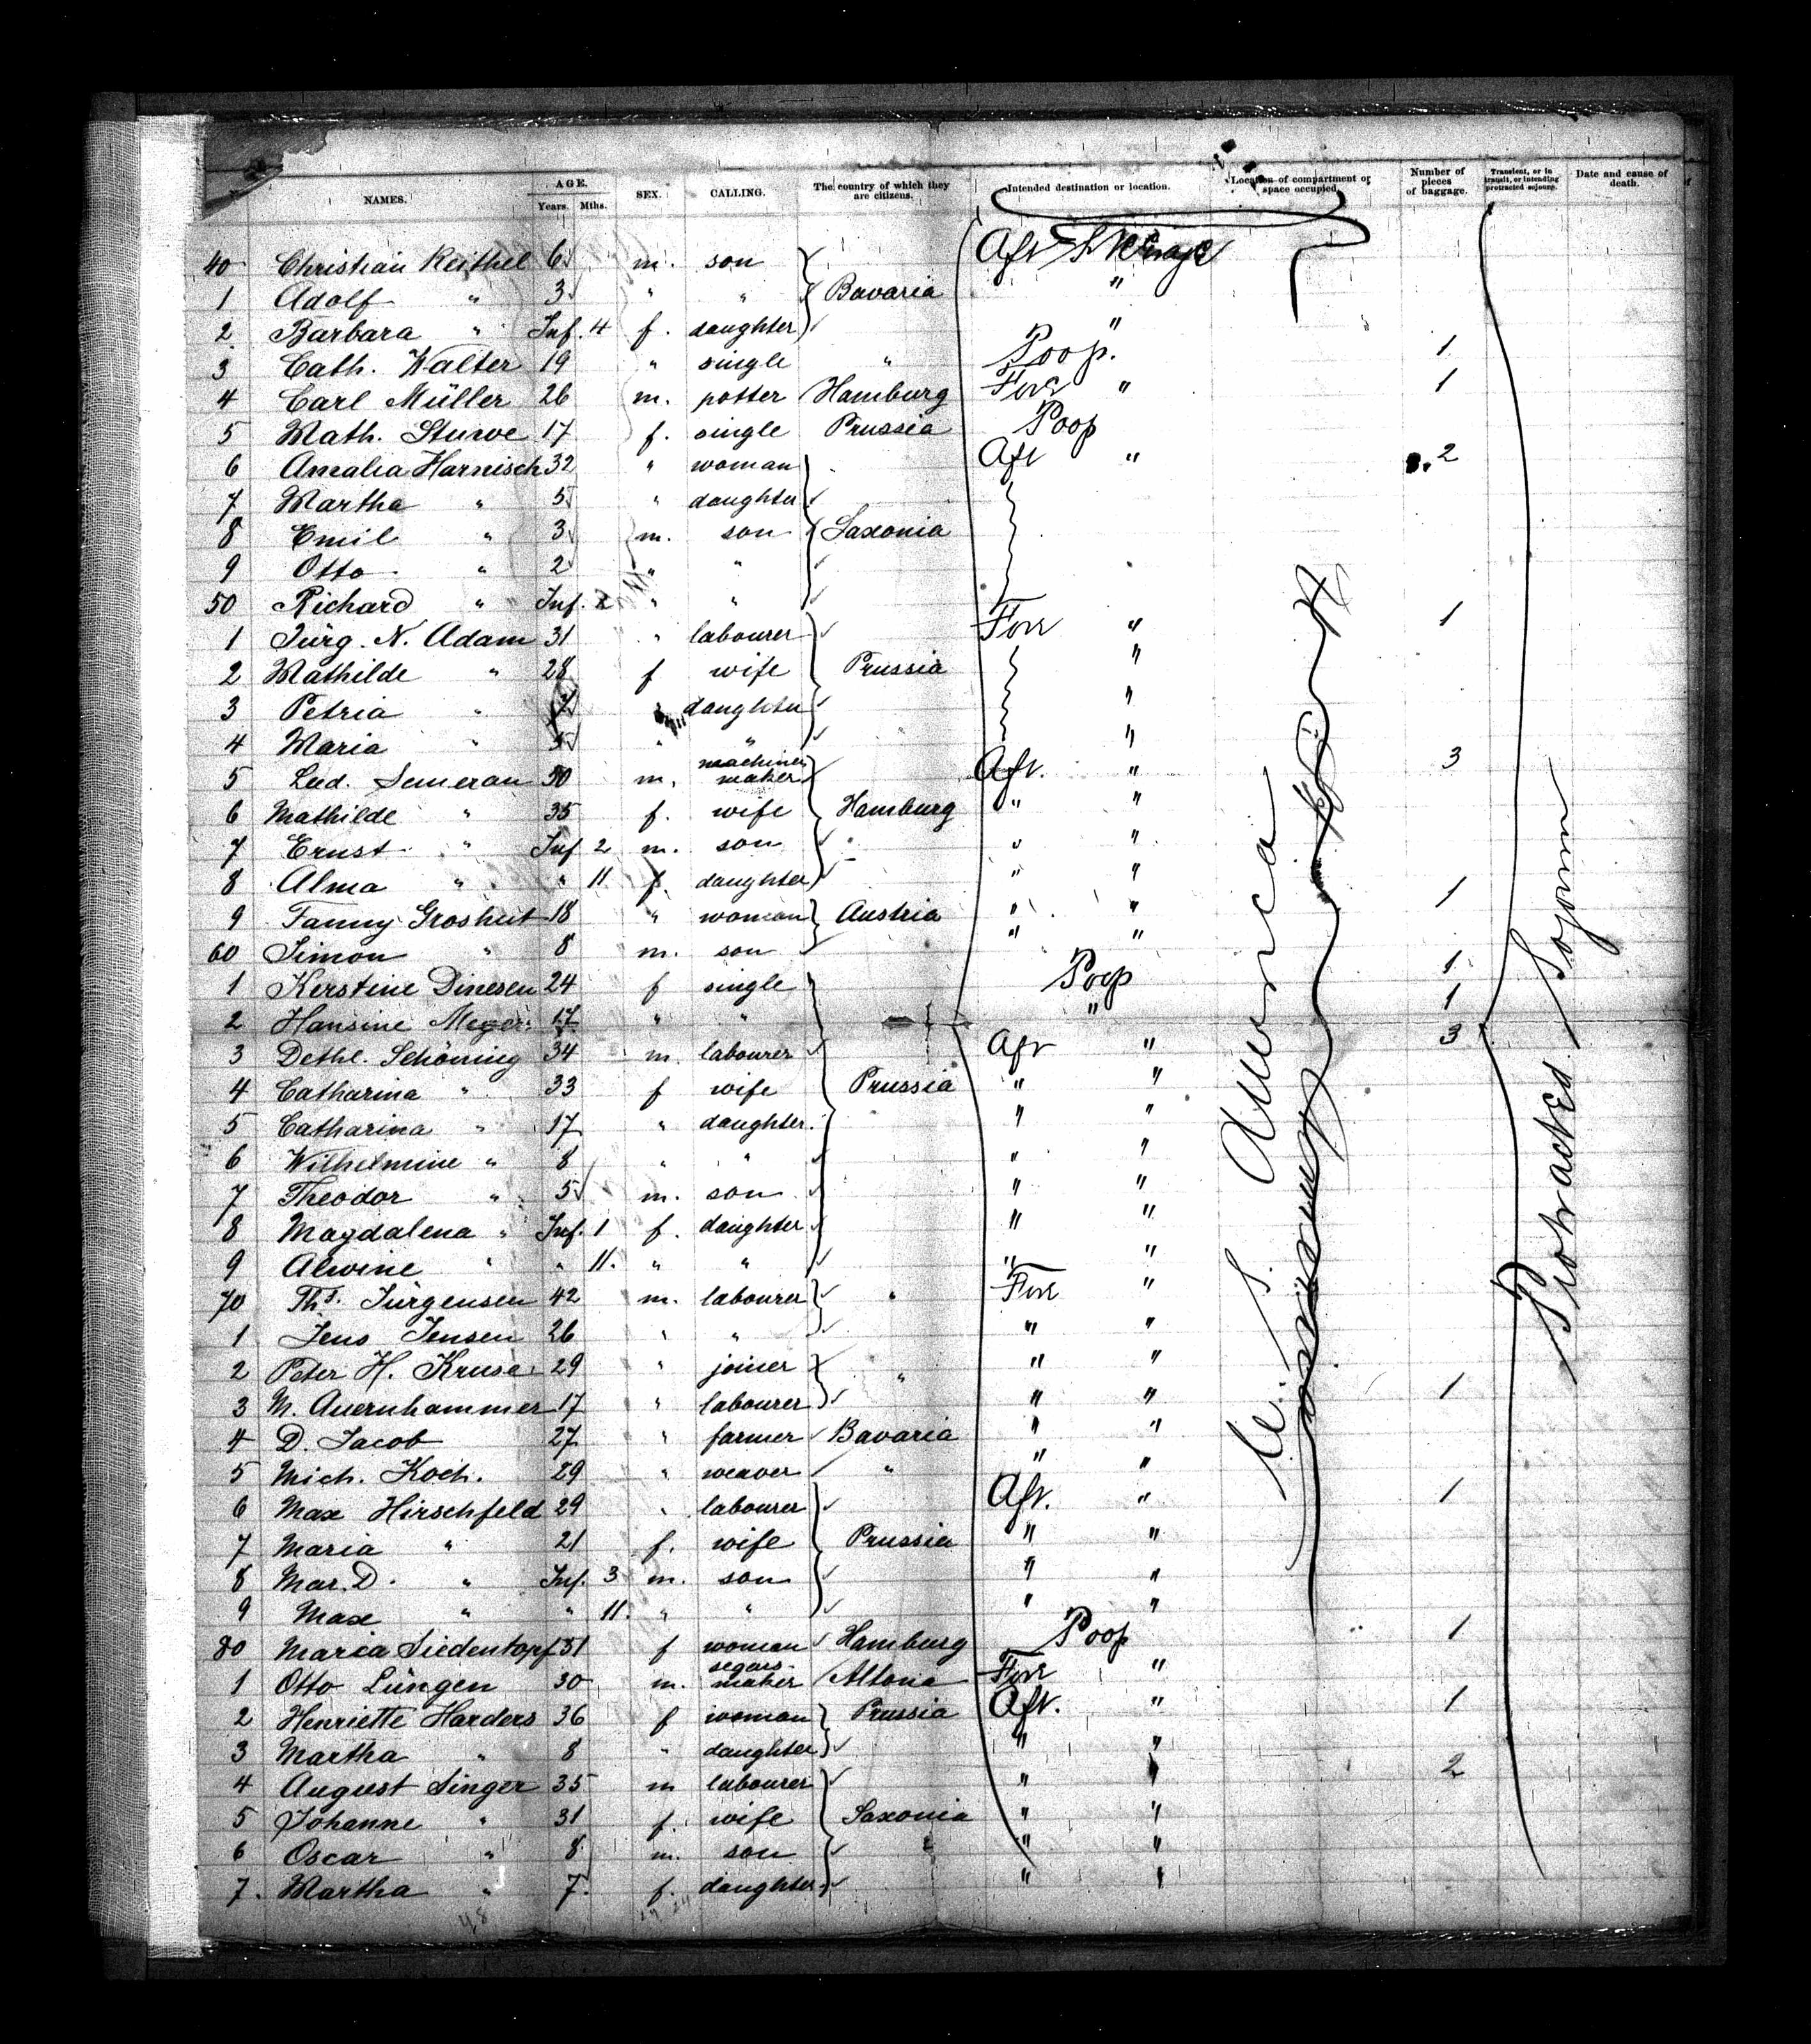 NAMES. AGE. Years. Mths. SEX. CALLING. The country of which they are citizens. Intended destination or location. Location of compartment or space occupied. Number of pieces of baggage. Transient, or in transit, or intending protracted sojourn. Date and cause of death.
40 Christian Reithel 6 m. son Aft Steerage
1 Adolf " 3 " " Bavaria "
2 Barbara " Inf. 4 f. daughter "
3 Cath. Walter 19 " single " Poop. 1
4 Carl Müller 26 m. potter Hamburg Fore " 1
5 Math. Stuwe 17 f. single Prussia Poop
6 Amalia Harnisch 32 " woman Aft " 2
7 Martha " 5 " daughter
8 Emil " 3 m. son Saxonia
9 Otto " 2 " "
50 Richard " Inf. " "
1 Jürg. N. Adam 31 " labourer Fore " 1
2 Mathilde " 28 f wife Prussia "
3 Petria " " daughter "
4 Maria " " " "
5 Lud. Semeran 50 m. machinen maker Aft. " 3
6 Mathilde " 35 f. wife Hamburg " "
7 Ernst " Inf 2 m. son " "
8 Alma " " 11 f. daughter " "
9 Fanny Groshut 18 " woman Austria " " 1
60 Simon " 8 m. son " "
1 Kerstine Dinesen 24 f single Poop 1
2 Hansine Meyer 17 " " " 1
3 Dethl. Schöning 34 m. labourer Aft " 3
4 Catharina " 33 f wife Prussia " "
5 Catharina " 17 " daughter " "
6 Wilhelmine " 8 " " " "
7 Theodor " 5 m. son " "
8 Magdalena " Inf. 1 f. daughter " "
9 Alwine " " 11. " " " "
70 Ths. Jürgensen 42 m. labourer " Fore "
1 Jens Jensen 26 " " " "
2 Peter H. Kruse 29 " joiner " " "
3 M. Auernhammer 17 " labourer " " 1
4 D. Jacob 27 " farmer Bavaria " "
5 Mich. Koch. 29 " weaver " " "
6 Max Hirschfeld 29 " labourer Aft. " 1
7 Maria " 21 f. wife Prussia " "
8 Mar. D. " Inf. 3 m. son " "
9 Max " " 11. " " " "
80 Maria Siedentopf 51 f woman Hamburg Poop 1
1 Otto Lüngen 30 m. segars maker Altona Fore "
2 Henriette Harders 36 f woman Prussia Aft. " 1
3 Martha " 8 " daughter " "
4 August Singer 35 m labourer " " 2
5 Johanne " 31 f. wife Saxonia " "
6 Oscar " 8 m. son " "
7. Martha " 7. f. daughter " "
48
U. S. America
Protracted Sojourn